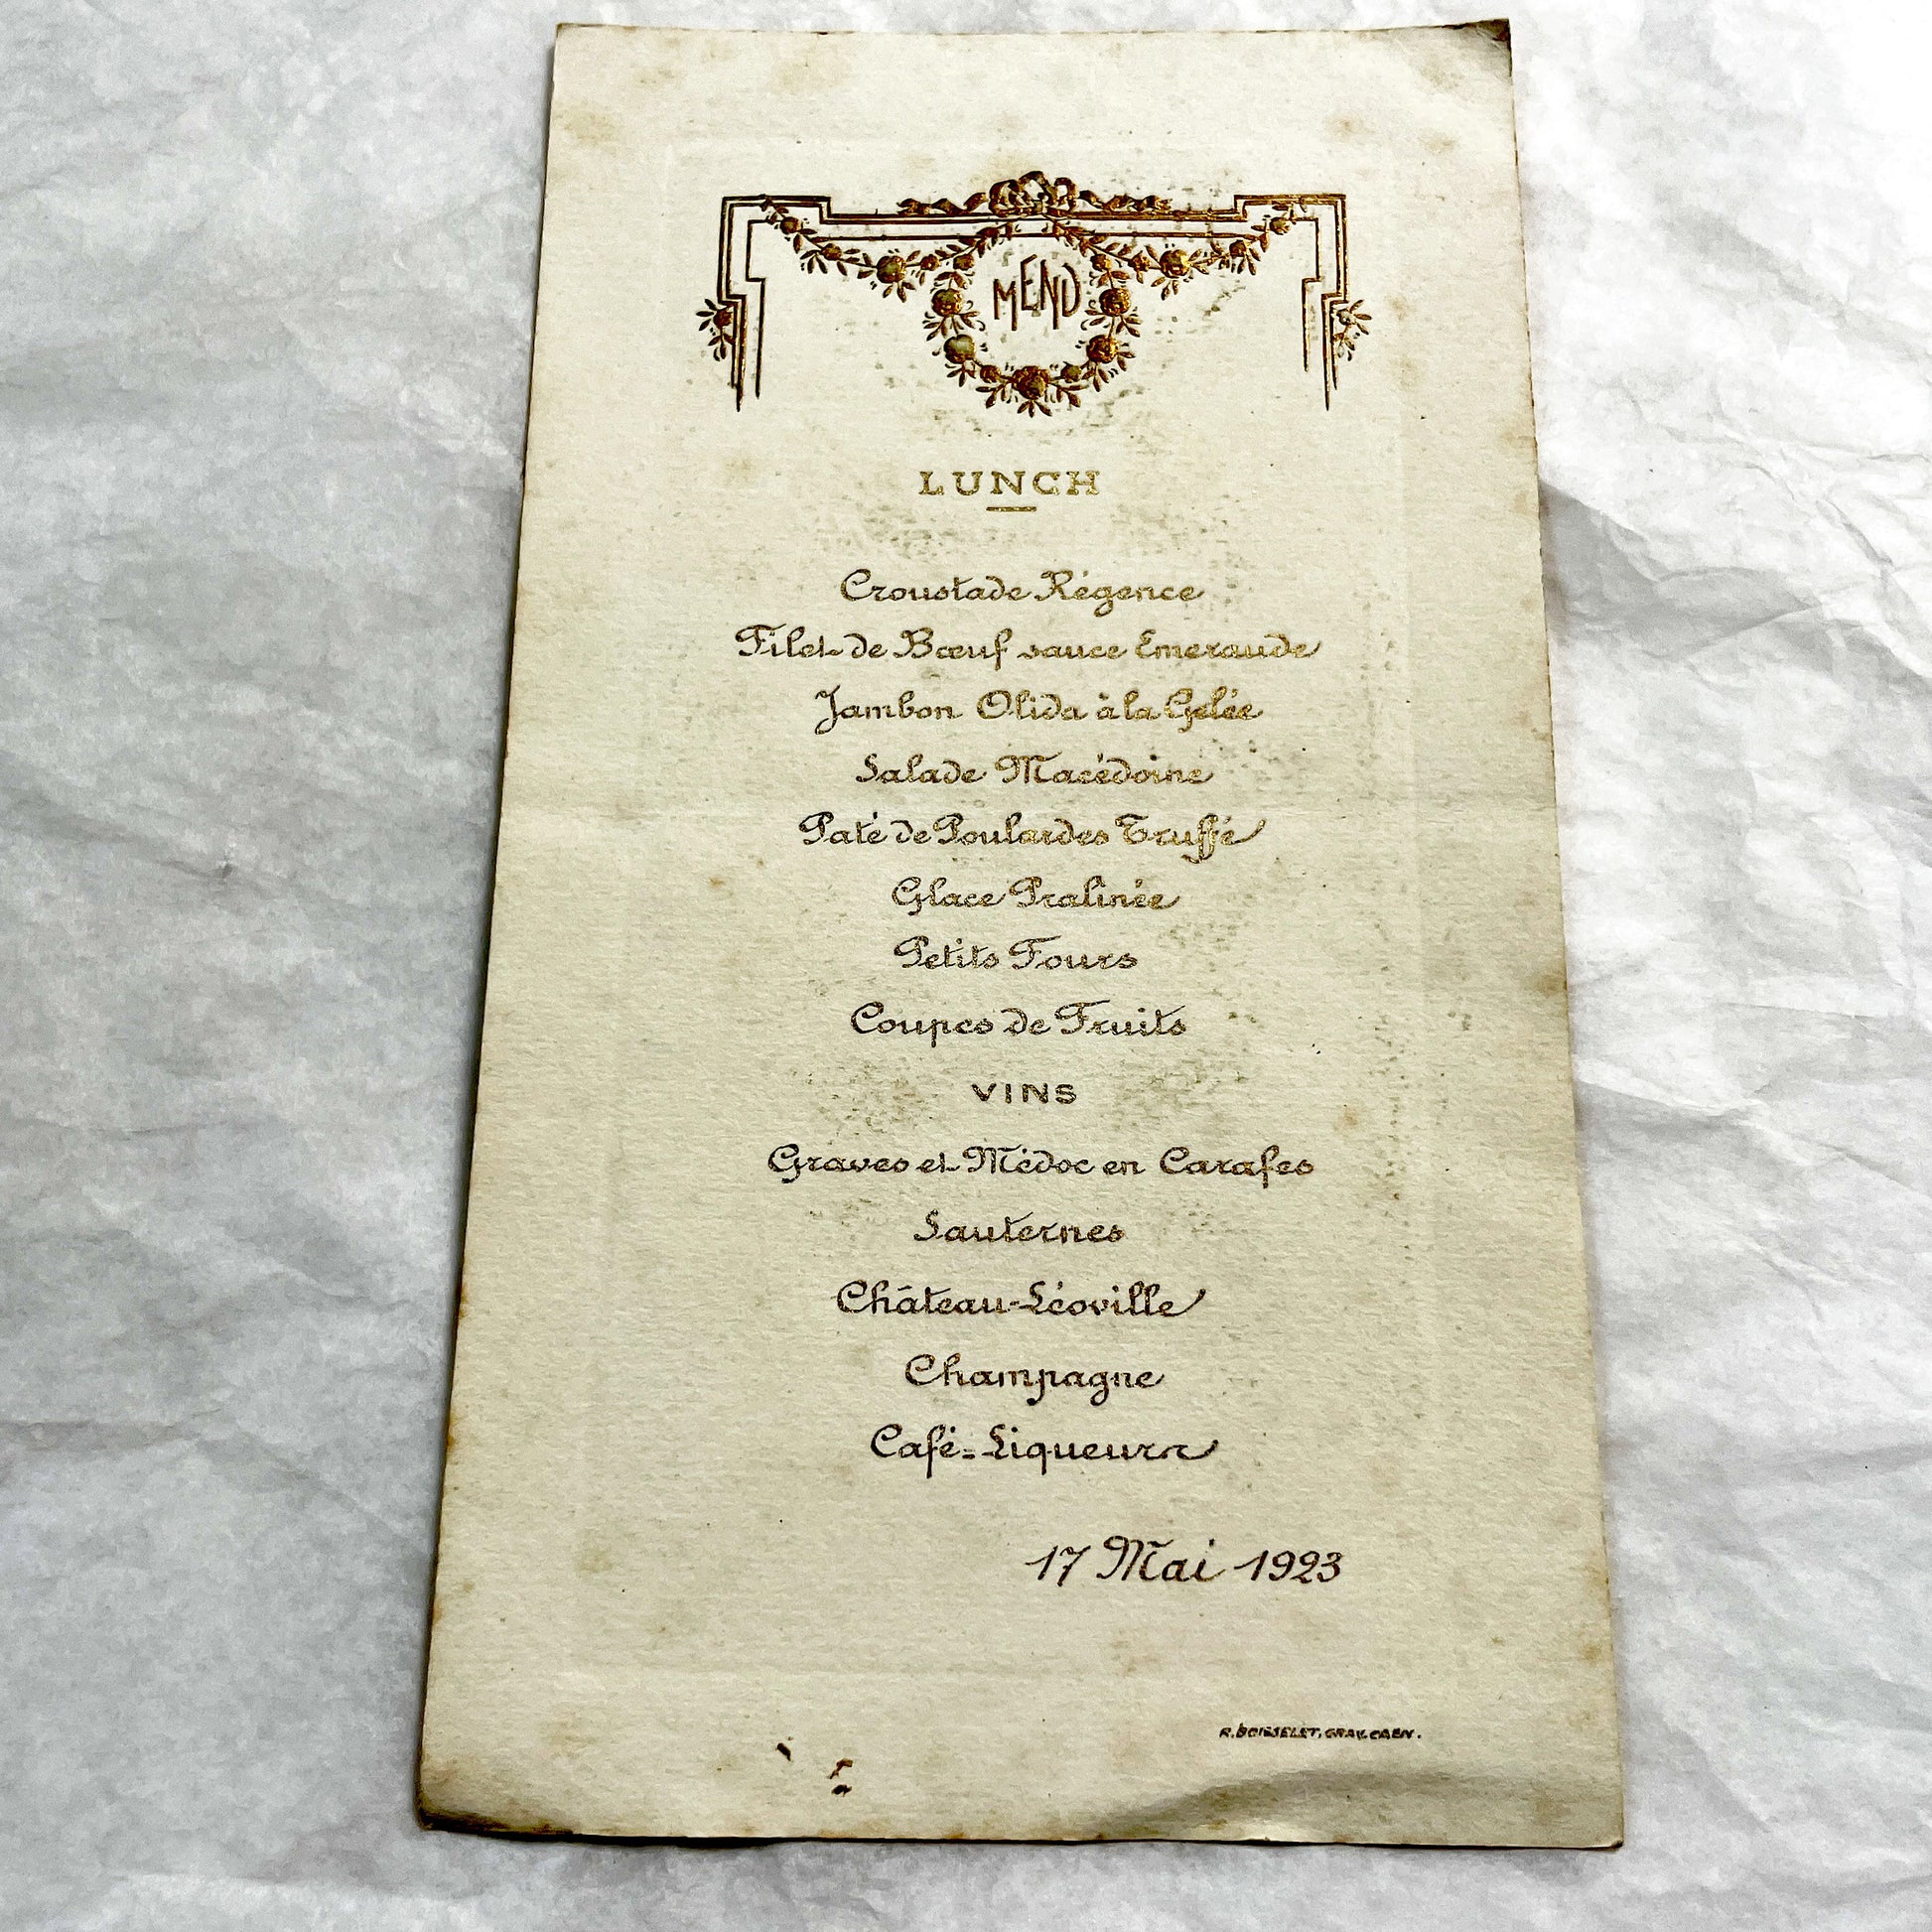 MENU
LUNCH
Croustade Régence
Filet de Bœuf sauce Emeraude
Jambon Olida à la Gelée
Salade Macédoine
Paté de Poulardes Truffé
Glace Pralinée
Petits Fours
Coupes de Fruits
VINS
Graves et Médoc en Carafes
Sauternes
Château-Léoville
Champagne
Café=Liqueurs
17 Mai 1923
R. BOISSELET, GRAV. CAEN.